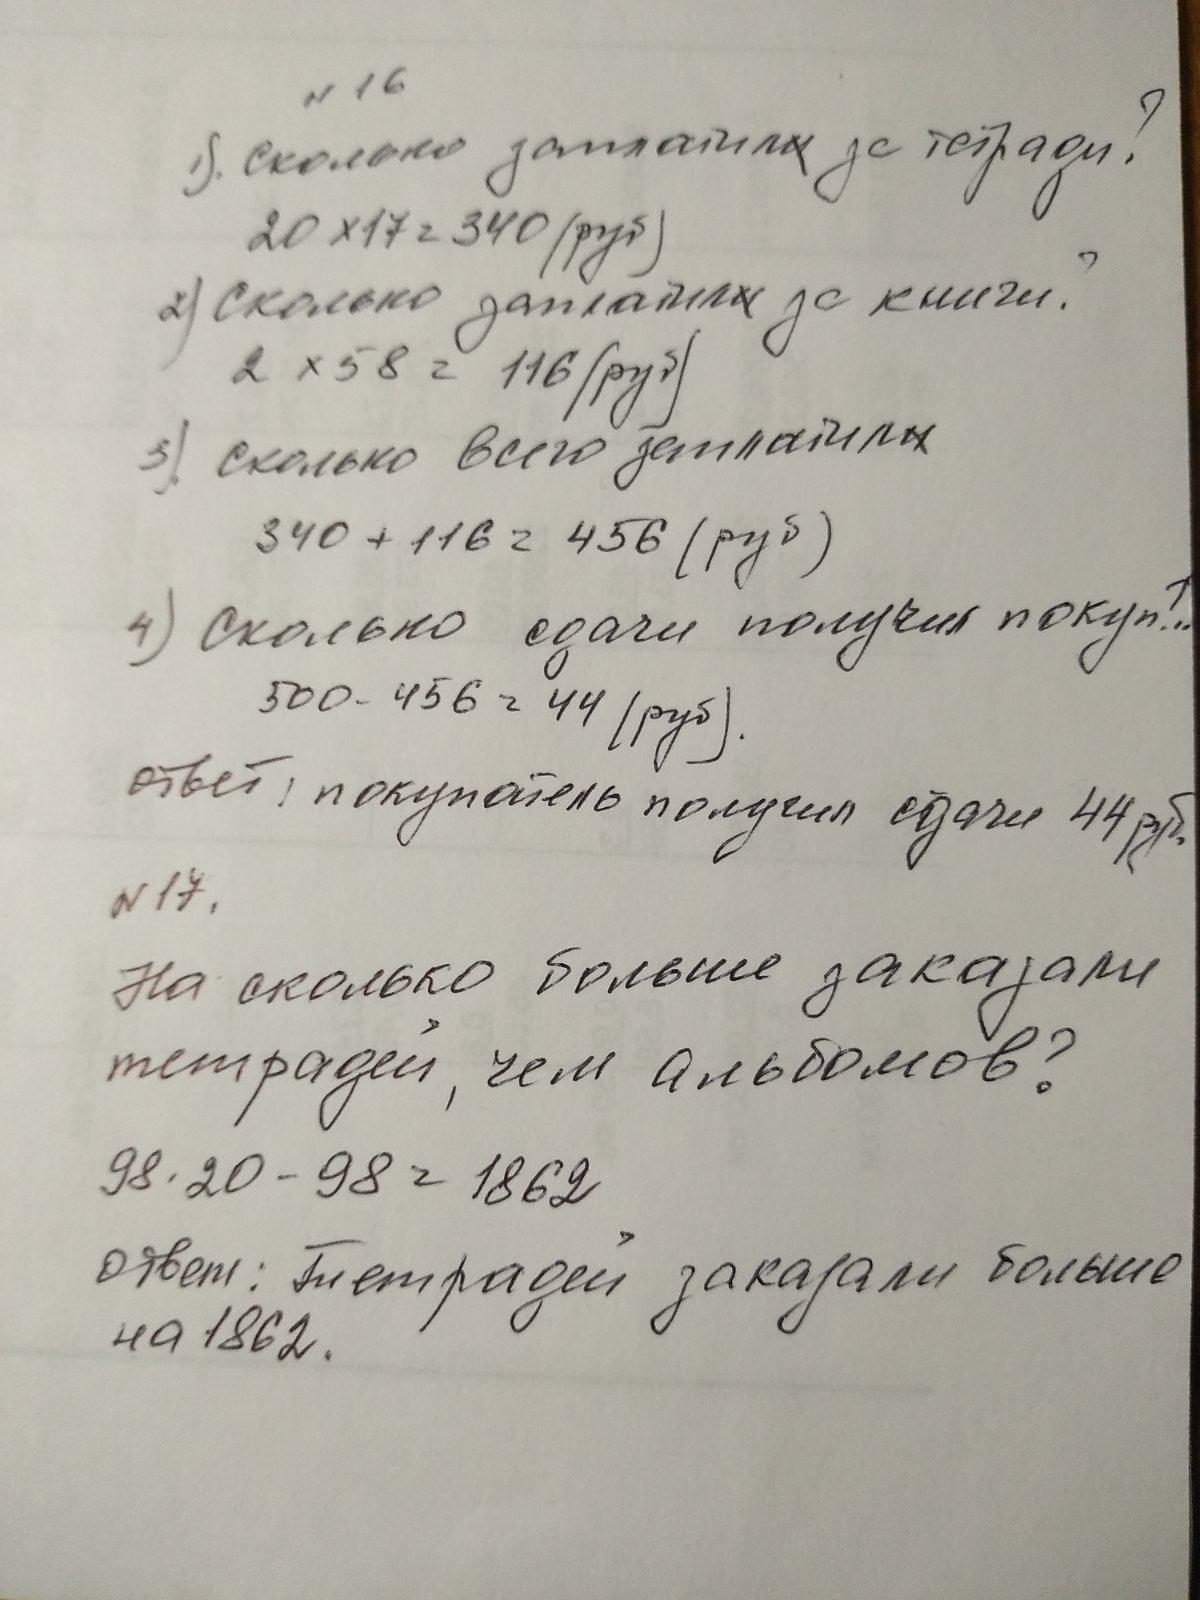 № 16
1). Сколько заплатил за тетради?
20 × 17 = 340 (руб)
2) Сколько заплатил за книги?
2 × 58 = 116 (руб)
3). Сколько всего заплатил
340 + 116 = 456 (руб)
4) Сколько сдачи получил покуп?..
500 - 456 = 44 (руб).
ответ: покупатель получил сдачи 44 руб.
№ 17.
На сколько больше заказали
тетрадей, чем альбомов?
98 · 20 - 98 = 1862
ответ: Тетрадей заказали больше
на 1862.